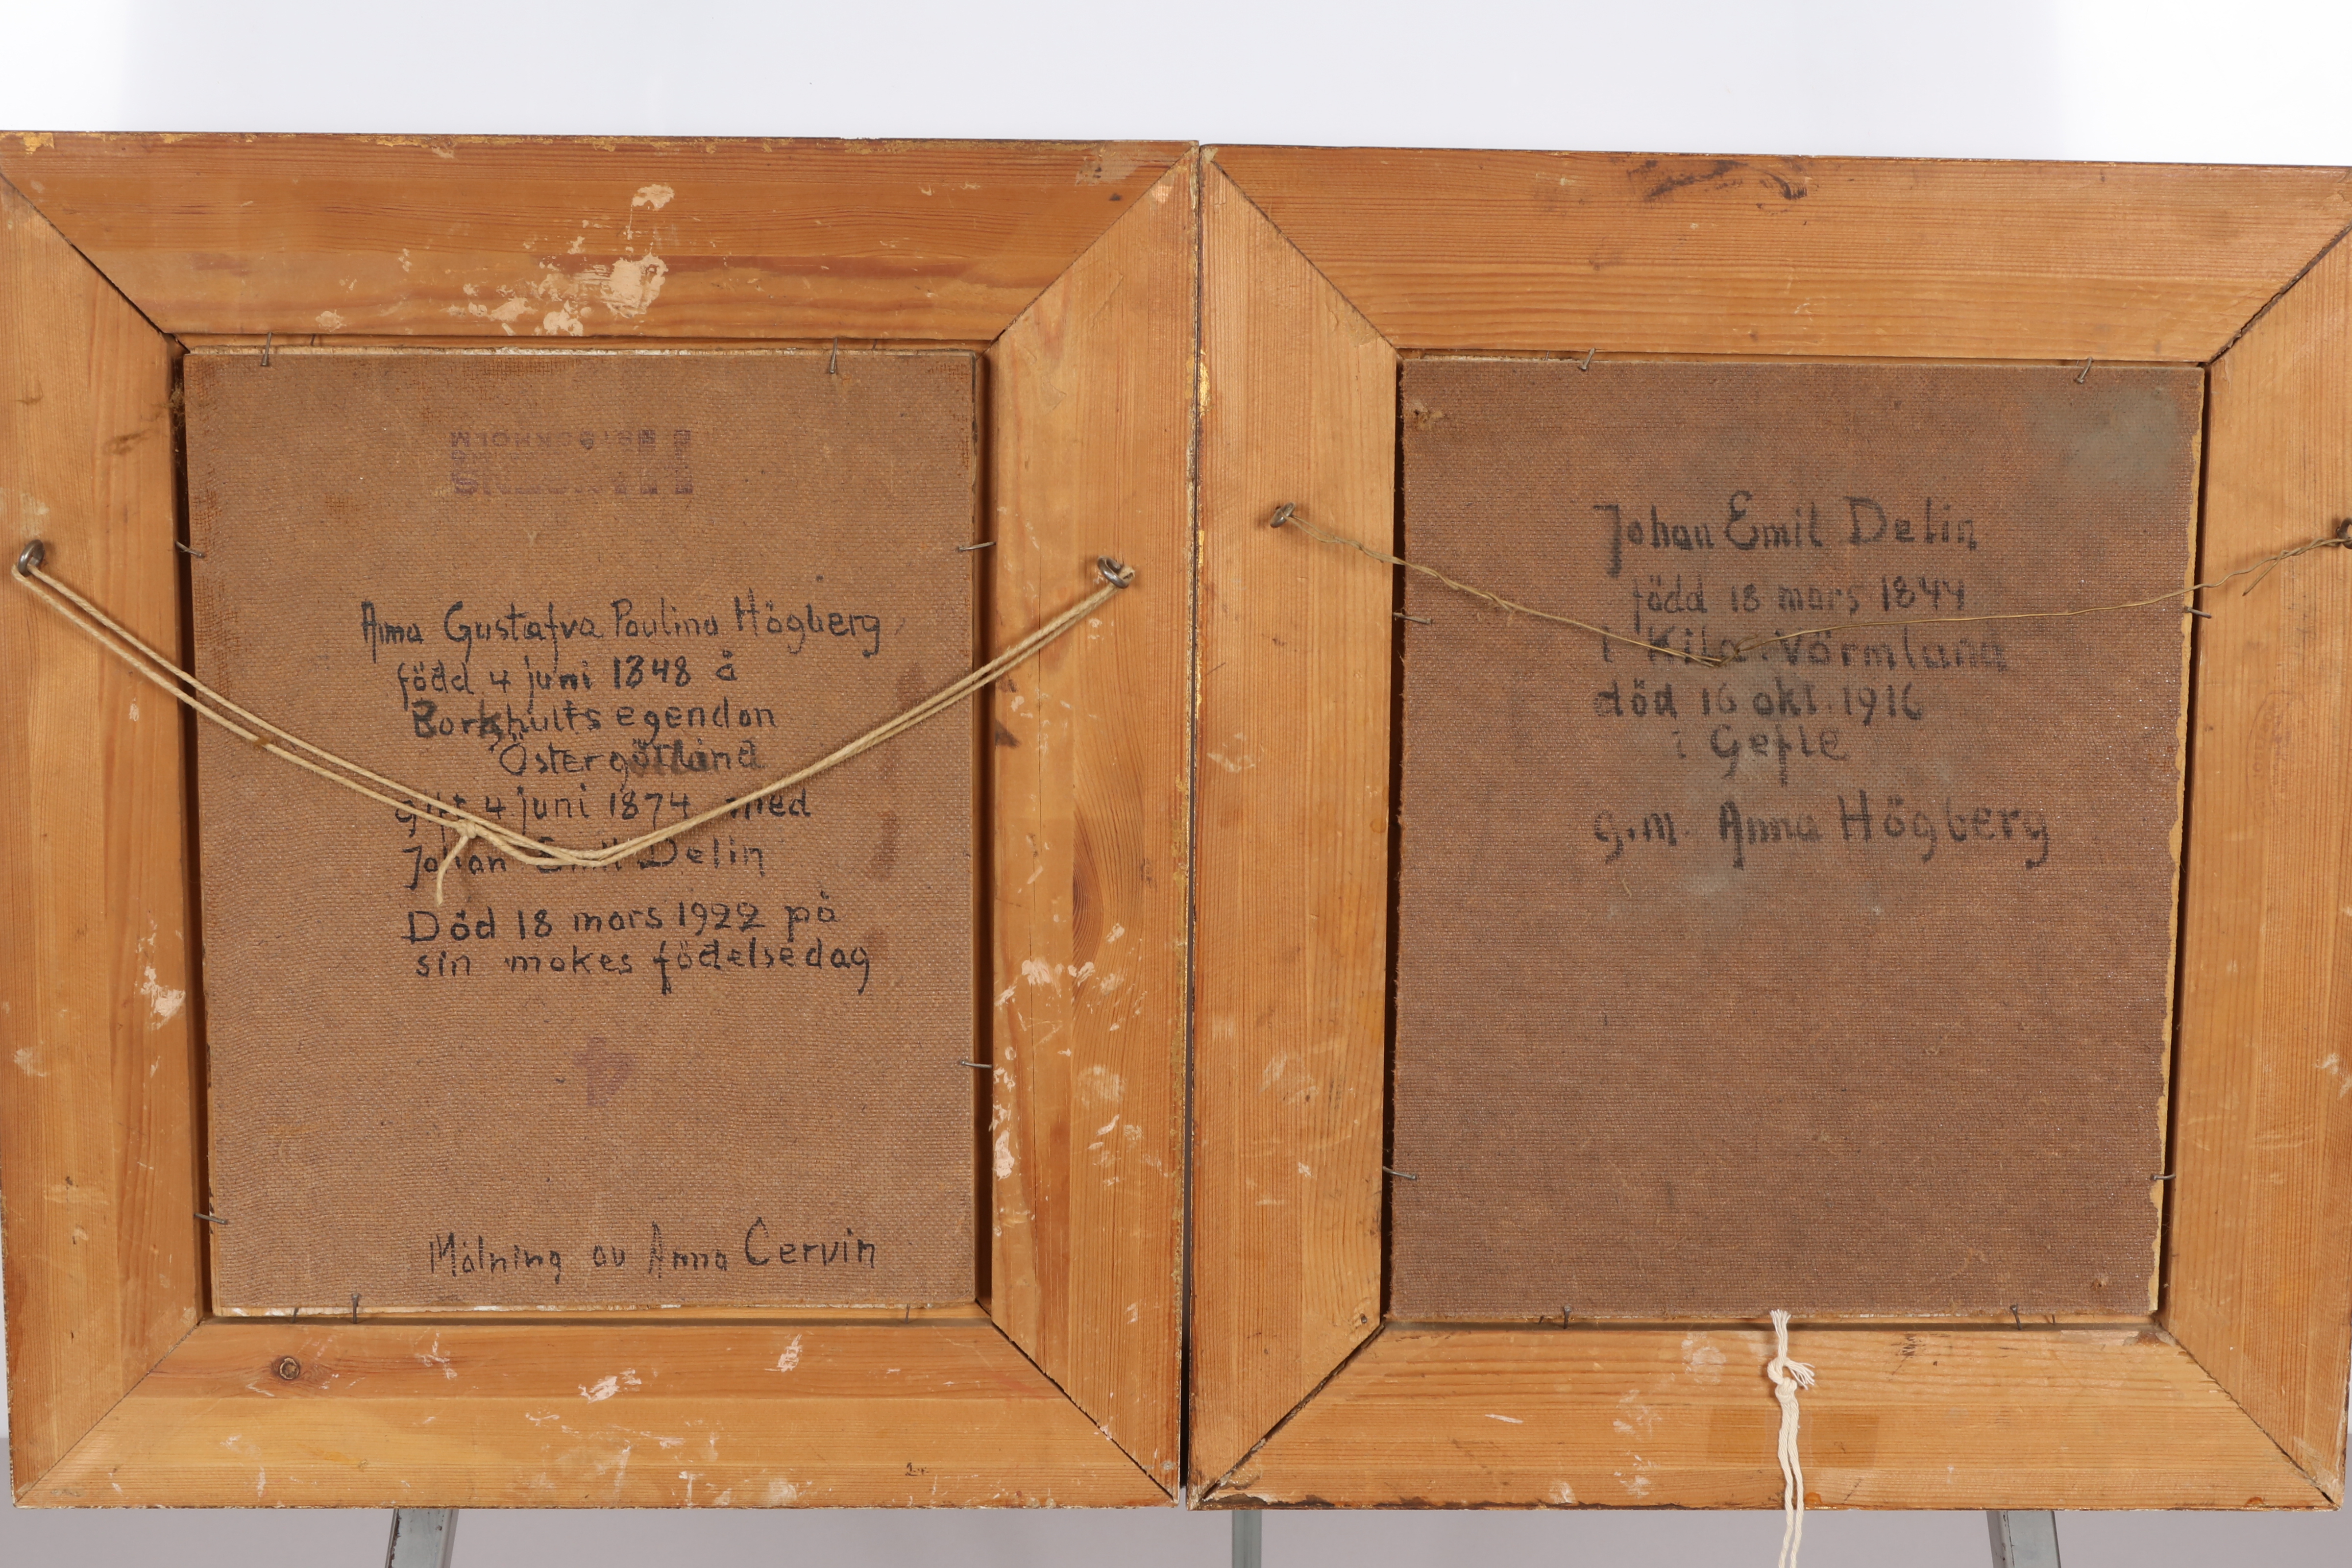 Anna Gustafva Paulina Högberg
född 4 juni 1848 å
Borkhults egendon
Östergötland
gift 4 juni 1874 med
Johan Emil Delin
Död 18 mars 1922 på
sin makes födelsedag
4
Målning av Anna Cervin
Johan Emil Delin
född 18 mars 1844
i Kila i Värmland
död 16 okt. 1916
i Gefle
g.m. Anna Högberg